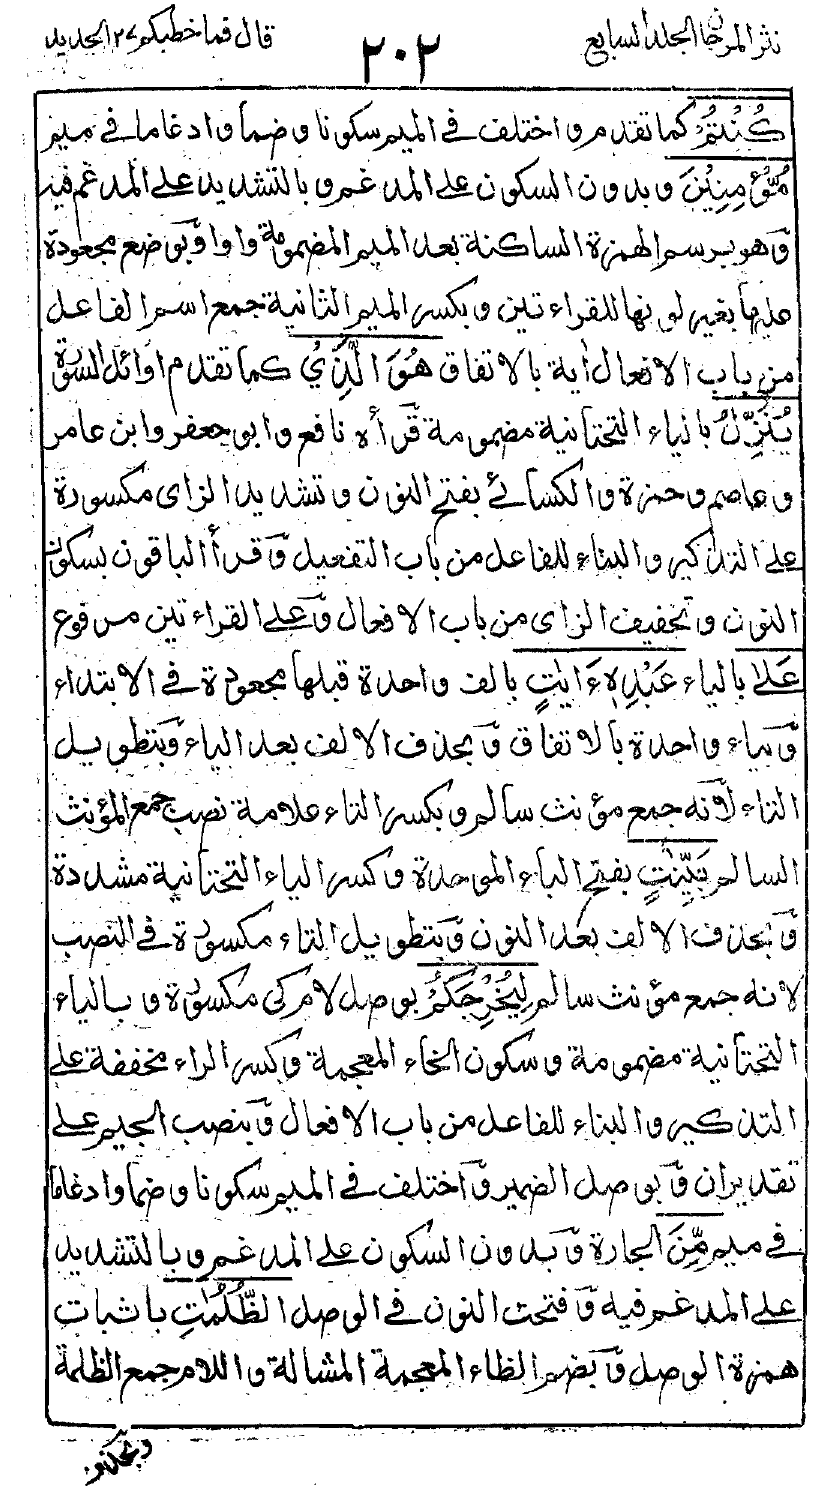 نثر المرجان الجلد السابع ٢٠٢ قال فما خطبكم ٢٧ الحديد
كُنْتُمْ كما تقدم واختلف في الميم سكونا وضما وادغاما في ميم
مُؤْمِنِيْنَ وبدون السكون على المدغم وبالتشديد على المدغم فيه
وهو برسم الهمزة الساكنة بعد الميم المضمومة واوا وبوضع مجعودة
عليها بغير لونها للقراءتين وبكسر الميم الثانية جمع اسم الفاعل
من باب الافعال اية بالاتفاق هُوَ الَّذِيْ كما تقدم اوائل السورة
يُنَزِّلُ بالياء التحتانية مضمومة قرأه نافع وابو جعفر وابن عامر
وعاصم وحمزة والكسائي بفتح النون وتشديد الزاى مكسورة
على التذكير والبناء للفاعل من باب التفعيل وقرأ الباقون بسكون
النون وتخفيف الزاى من باب الافعال وعلى القراءتين مرفوع
عَلٰى بالياء عَبْدِهٖ ءَايٰتٍ بالف واحدة قبلها مجعودة في الابتداء
وبياء واحدة بالاتفاق وبحذف الالف بعد الياء وبتطويل
التاء لانه جمع مؤنث سالم وبكسر التاء علامة نصب جمع المؤنث
السالم بَيِّنٰتٍ بفتح الباء الموحدة وكسر الياء التحتانية مشددة
وبحذف الالف بعد النون وبتطويل التاء مكسورة في النصب
لانه جمع مؤنث سالم لِيُخْرِجَكُمْ بوصل لام كي مكسورة وبالياء
التحتانية مضمومة وسكون الخاء المعجمة وكسر الراء مخففة على
التذكير والبناء للفاعل من باب الافعال وبنصب الجيم على
تقدير ان وبوصل الضمير واختلف في الميم سكونا وضما وادغاما
في ميم مِّنَ الجارة وبدون السكون على المدغم وبالتشديد
على المدغم فيه وفتحت النون في الوصل الظُّلُمٰتِ باثبات
همزة الوصل وبضم الظاء المعجمة المشالة واللام جمع الظلمة